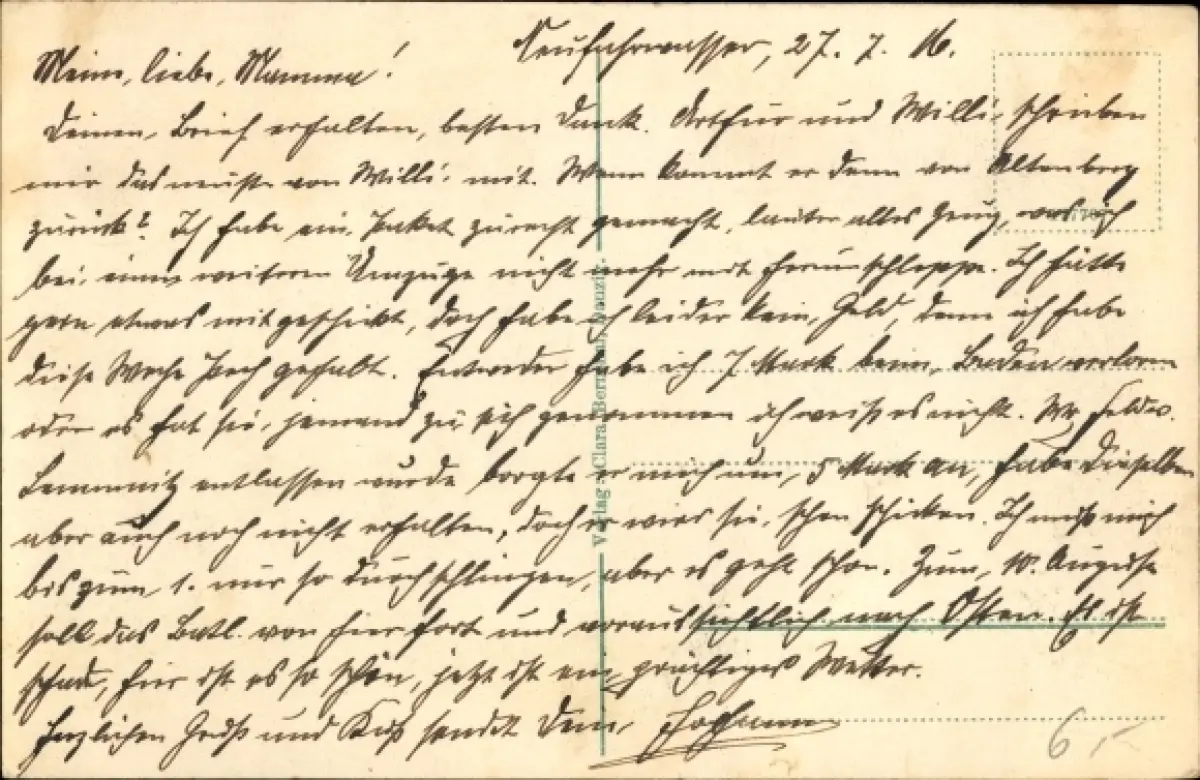 Neufahrwasser, 27. 7. 16.
Meine liebe Mamma!
Deinen Brief erhalten, besten Dank. Arthur und Willi schrieben
mir das neuste von Willi mit. Wann kommt er denn von Altenberg
zurück? Ich habe ein Paket zurecht gemacht, lauter altes Zeug, was ich
bei einem weiteren Umzuge nicht mehr mit herumschleppe. Ich hätte
gern etwas mitgeschickt, doch habe ich leider kein Geld, denn ich habe
diese Woche Pech gehabt. Entweder habe ich 7 Mark beim Baden verloren
oder es hat sie jemand zu sich genommen ich weiß es nicht. Wo Feldw.
Lemmnitz entlassen wurde borgte er mich um 5 Mark an, habe dieselben
aber auch noch nicht erhalten, doch er wird sie schon schicken. Ich muß mich
bis zum 1. nur so durchschlingen, aber es geht schon. Zum 10. August
soll das Batl. von hier fort und voraussichtlich nach Osten. Es ist
schade, hier ist es so schön, jetzt ist ein prächtiges Wetter.
Herzlichen Gruß und Kuß sendet Dein
Verlag Clara Bernthal, Danzig.
6,-